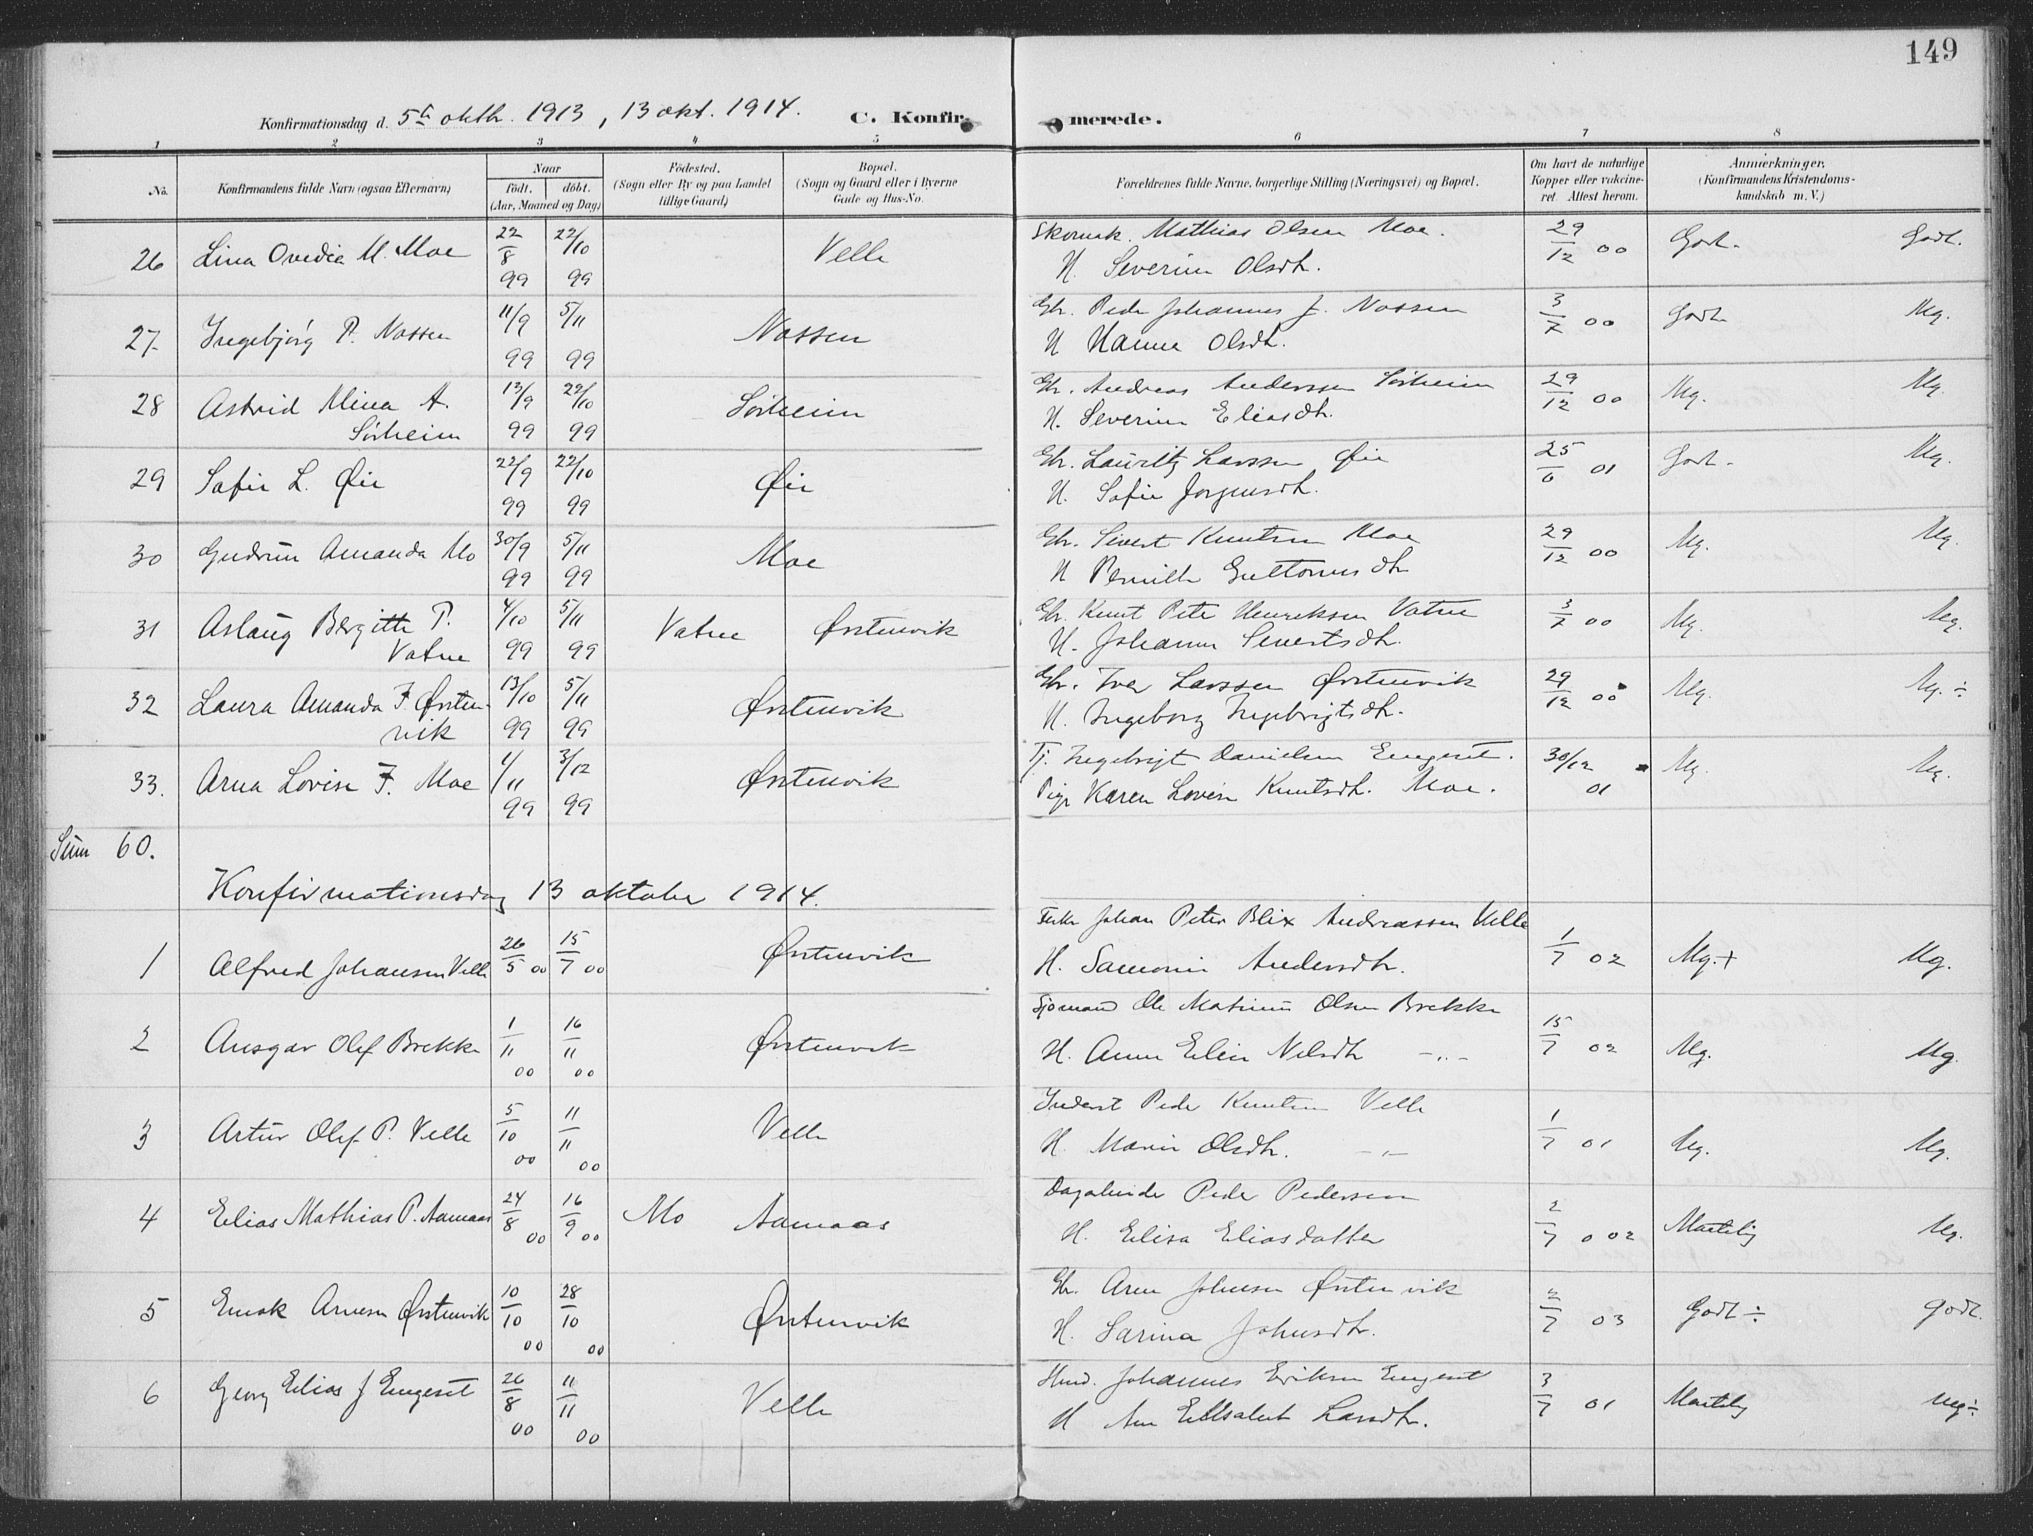 149
Konfirmationsdag d. 5te oktb. 1913, 13 okt. 1914. C. Konfir- merede.
1 2 3 4 5 6 7 8
No. Konfirmandens fulde Navn (ogsaa Efternavn) Naar født. døbt. (Aar, Maaned og Dag) Fødested. (Sogn eller By og paa Landet tillige Gaard) Bopæl. (Sogn og Gaard eller i Byerne Gade og Hus-No. Forældrenes fulde Navne, borgerlige Stilling (Næringsvei) og Bopæl. Om havt de naturlige Kopper eller vakcineret Attest herom. Anmærkninger, (Konfirmandens Kristendomskundskab m. V.)
26 Lina Ovedia M. Moe 22/8 99 22/10 99 Velle Skomak. Mathias Olsen Moe. 29/12 00 Godt. Godt.
H. Severine Olsdtr.
27. Ingebjørg P. Nossen 11/9 99 5/11 99 Nossen Gbr. Peder Johannes J. Nossen 3/7 00 Godt Mg.
H Hanna Olsdtr.
28 Astrid Mina A. 13/9 99 22/10 99 Sörheim Gbr. Andreas Anderssen Sörheim 29/12 00 Mg. Mg.
Sörheim H. Severine Eliasdtr.
29 Sofie L. Øie 22/9 99 22/10 99 Øie Gbr. Lauritz Larssen Øie 25/6 01 Godt. Mg.
H. Sofie Jorgensdtr.
30 Gudrun Amanda Mo 30/9 99 5/11 99 Moe Gbr. Sivert Knutsen Moe 29/12 00 Mg. Mg.
H Pernille Guttormsdtr
31 Aslaug Bergitte P. 4/10 99 5/11 99 Vatne Ørstenvik Gbr. Knut Peter Henriksen Vatne 3/7 00 Mg. Mg.
Vatne H. Johanne Sivertsdtr.
32 Laura Amanda F Ørsten- 13/10 99 5/11 99 Ørstenvik Gbr. Iver Larssen Ørstenvik 29/12 00 Mg. Mg. ÷
vik H. Ingeborg Ingebrigtsdtr.
33. Arna Lovise F. Moe 1/11 99 3/12 99 Ørstenvik Tj. Ingebrigt Danielsen Engeset. 30/12 01 Mg. Mg.
Pige Karen Lovise Knutsdtr. Moe.
Sum 60.
Konfirmationsdag 13 oktober 1914.
1 Alfred Johansen Velle 26/5 00 15/7 00 Ørstenvik Johan Peter Blix Andreassen Velle 1/7 02 Mg.+ Mg.
H. Andersdtr.
2 Ansgar Olef Brekke 1/11 00 16/11 00 Ørstenvik Sjømand Ole Matinus Olsen Brekke 15/7 02 Mg. Mg.
H. Anne Eline Nilsdtr -„-
3 Artur Olef P. Velle 5/10 00 11/11 00 Velle Inderst Peder Knutsen Velle 1/7 01 Mg. Mg.
H. Marie Olsdtr. -„-
4 Elias Mathias P. Aamaas 24/8 00 16/9 00 Mo Aamaas Peder Pedersen 2/7 002 Maatelig Mg.
H. Elisa Eliasdatter
5 Enok Arnesen Ørstenvik 10/10 00 28/10 00 Ørstenvik Gbr. Arne Johnsen Ørstenvik 2/7 03 Godt ÷ Godt.
H. Sarina Johnsdtr.
6 Georg Elias J Engeset 26/8 00 11/11 00 Velle Hmd. Johannes Eriksen Engeset 3/7 01 Maatelig Mg÷
H Ane Elisabet Larsdtr.